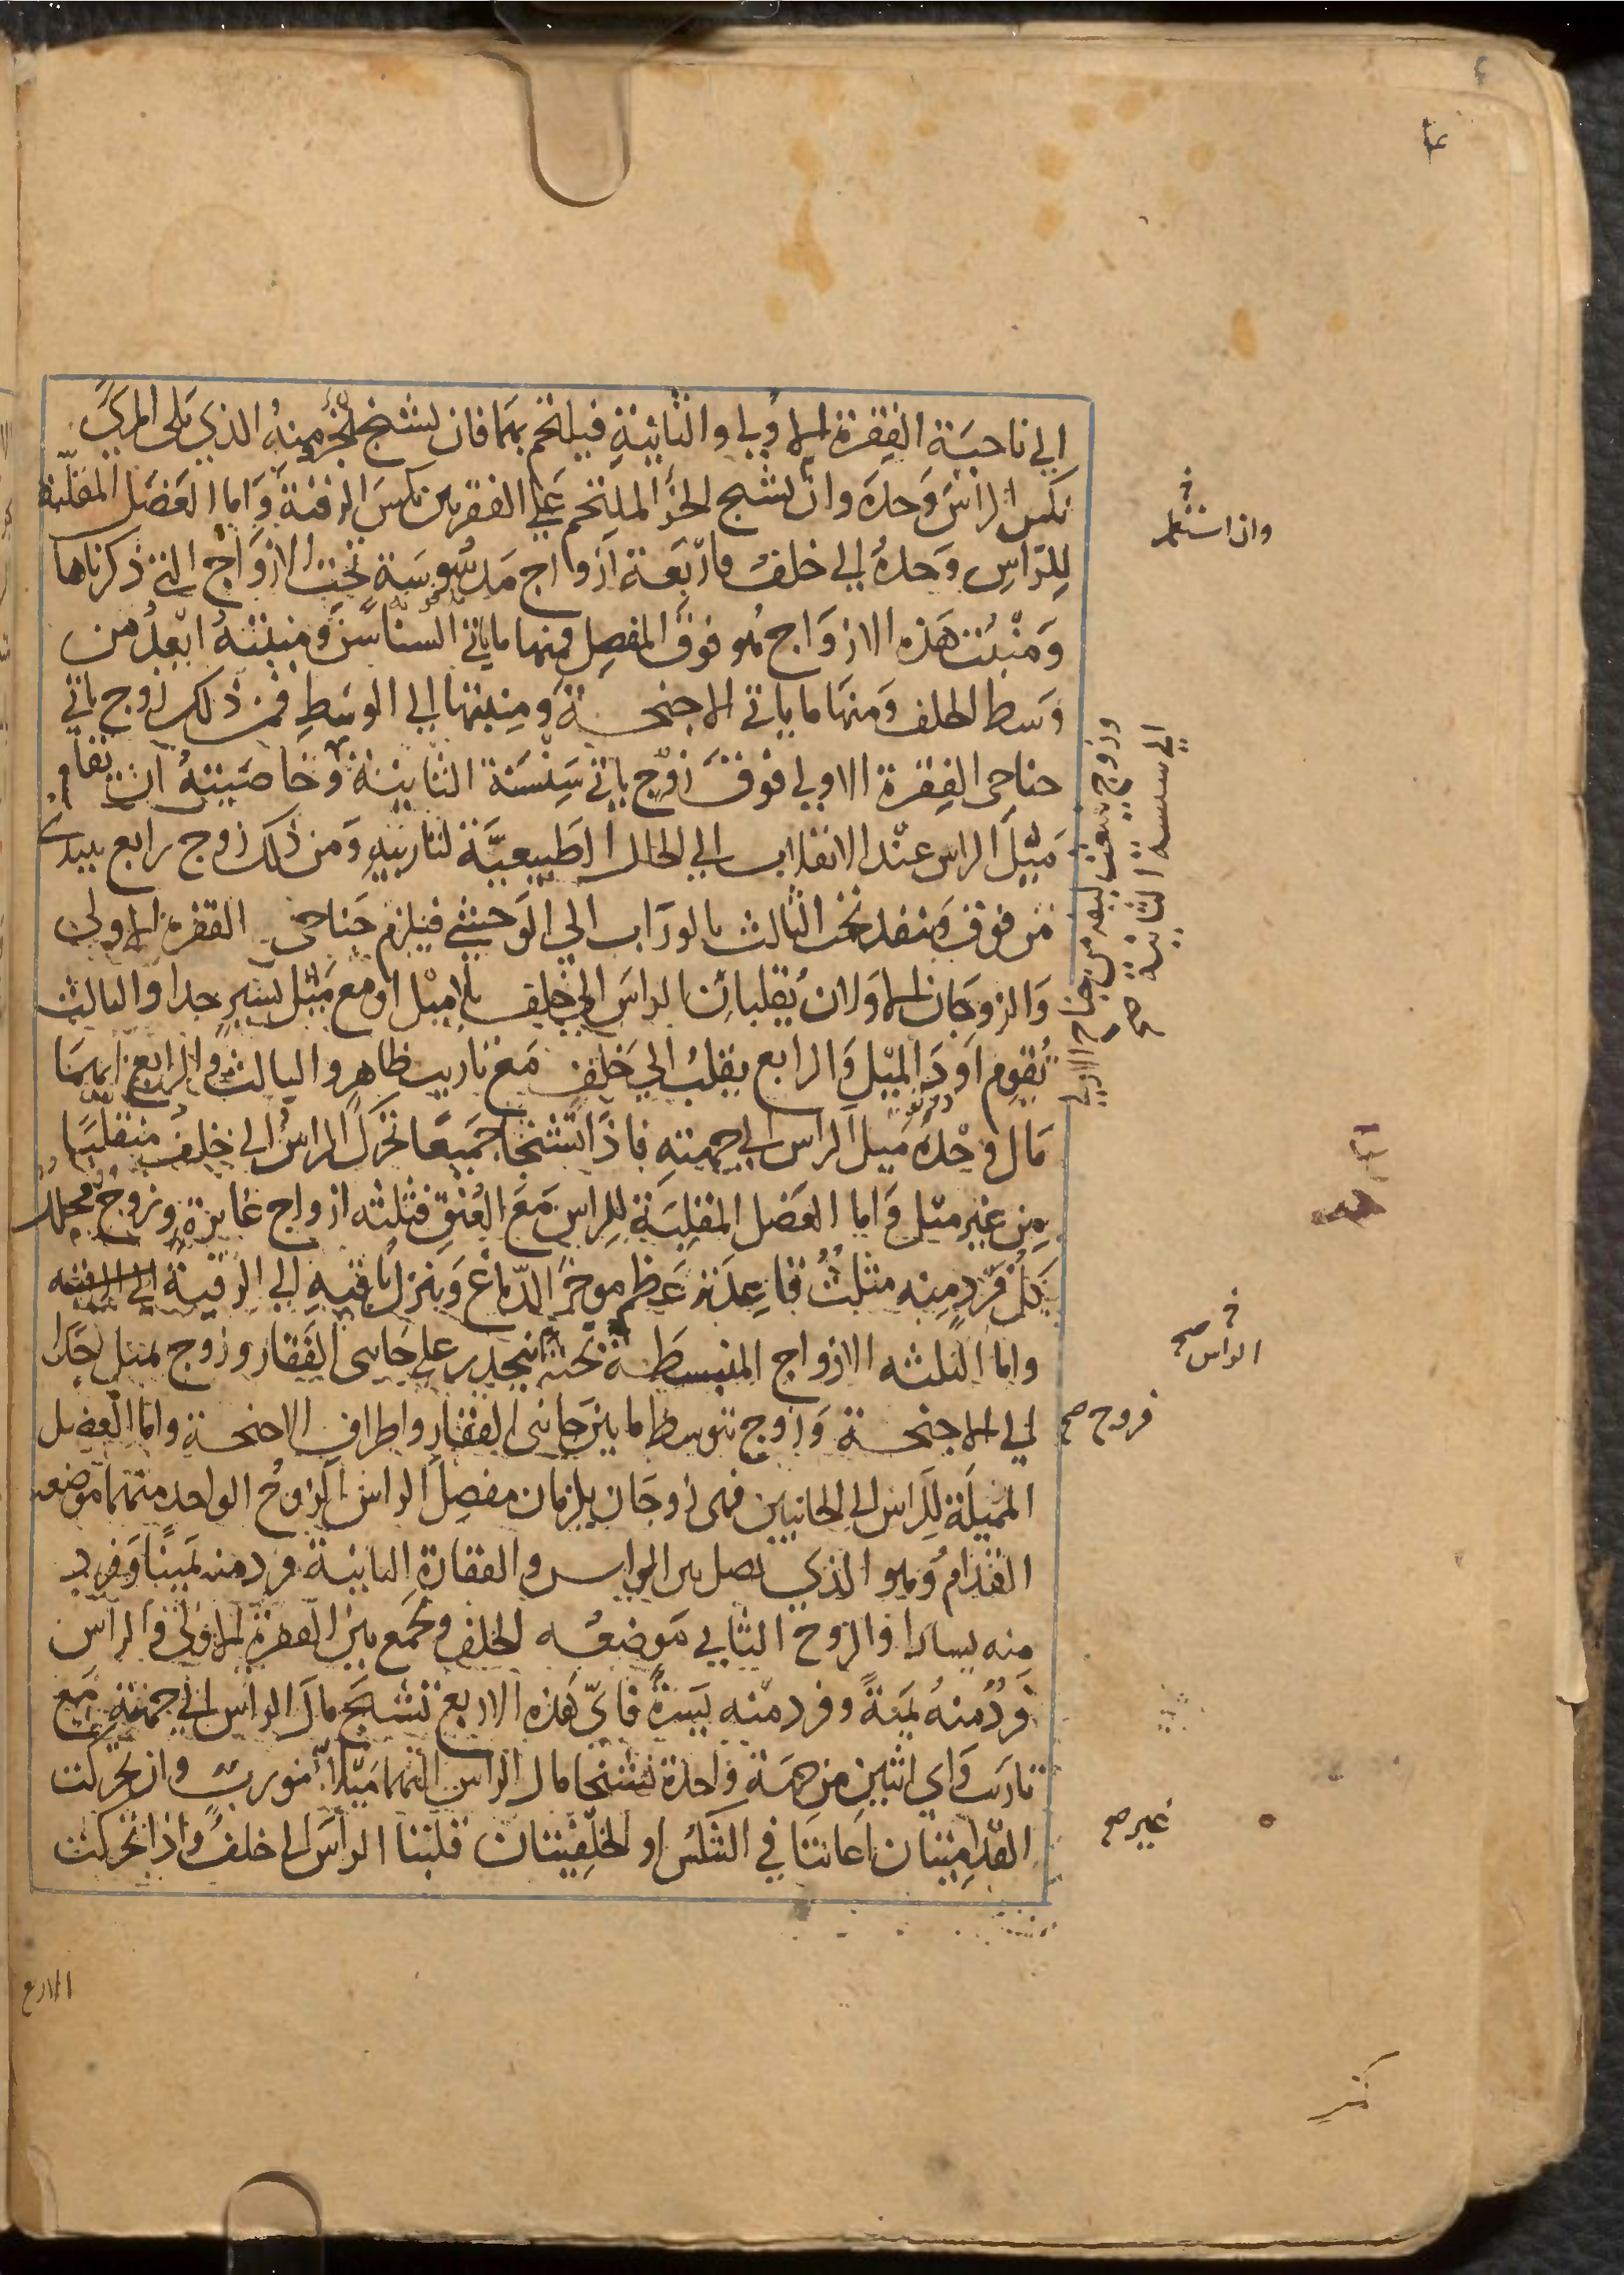 الي ناحية الفقرة الاولي والثانية فيلتحم بهما فان تشنج بجزء منه الذي يلي المري
نكس الراس وحده وان تشنج الجزء الملتحم علي الفقرتين نكس الرقبة واما العضل المقلبة
للراس وحده الي خلف فاربعة ازواج مدسوسة تحت الازواج التي ذكرناها
ومنبت هذه الازواج هو فوق المفصل فمنها ما ياتي السناسن ومنبته ابعد من
وسط الخلف ومنها ما ياتي الاجنحة ومنبتها الي الوسط فمن ذلك زوج ياتي
جناحي الفقرة الاولي فوق زوج ياتي سنسنة الثانية وخاصيته ان تقام
ميل الراس عند الانقلاب الي الحال الطبيعية لتاربيه ومن ذلك زوج رابع يبتدي
من فوق وينفد تحت الثالث بالوراب الي الوحشي فيلزم جناحي الفقرة الاولي
والزوجان الاولان يقلبان الراس الي خلف بلا ميل او مع ميل يسير جدا والثالث
يقوم اود الميل والرابع يقلب الي خلف مع تاريب ظاهر والثالث والرابع ايهما
مال وحده ميل الراس الي جهته فاذا تشنجا جميعا تحرك الراس الي خلف منقلبا
من غير ميل واما العضل المقلبة للراس مع العنق فثلثه ازواج غايرة وزوج مجلل
كل فرد منه مثلث قاعدته عظم موخر الدماغ وينزل باقيه الي الرقبة
واما الثلثه الازواج المنبسطة تحته فينحدر علي جانبي الفقار وزوج يميل جدا
الي الاجنحة وزوج يتوسط ما بين جانبي الفقار واطراف الاجنحة واما العضل
المميلة للراس الي الجانبين فهي زوجان يلزمان مفصل الراس الزوج الواحد منهما موضعه
القدام وهو الذي يصل بين الراس والفقارة الثانية فرد منه يمينا وفرد
منه يسارا والزوج الثاني موضعه الخلف ويجمع بين الفقرة الاولي والراس
فرد منه يمنة وفرد منه يسرة فاي هذه الاربع تشنج مال الراس الي جهته مع
تاريب واي اثنين من جهة واحدة تشنجا مال الراس اليهما ميلا متورب وان تحركت
القداميتان اعانتا في التنكس او الخلفيتان قلبتا الراس الي خلف واذا تحركت
وان استعمل
وزوج
الي سنسنة الثانية صح
في
الراس صح
فزوج صح
غير صح
الاربع